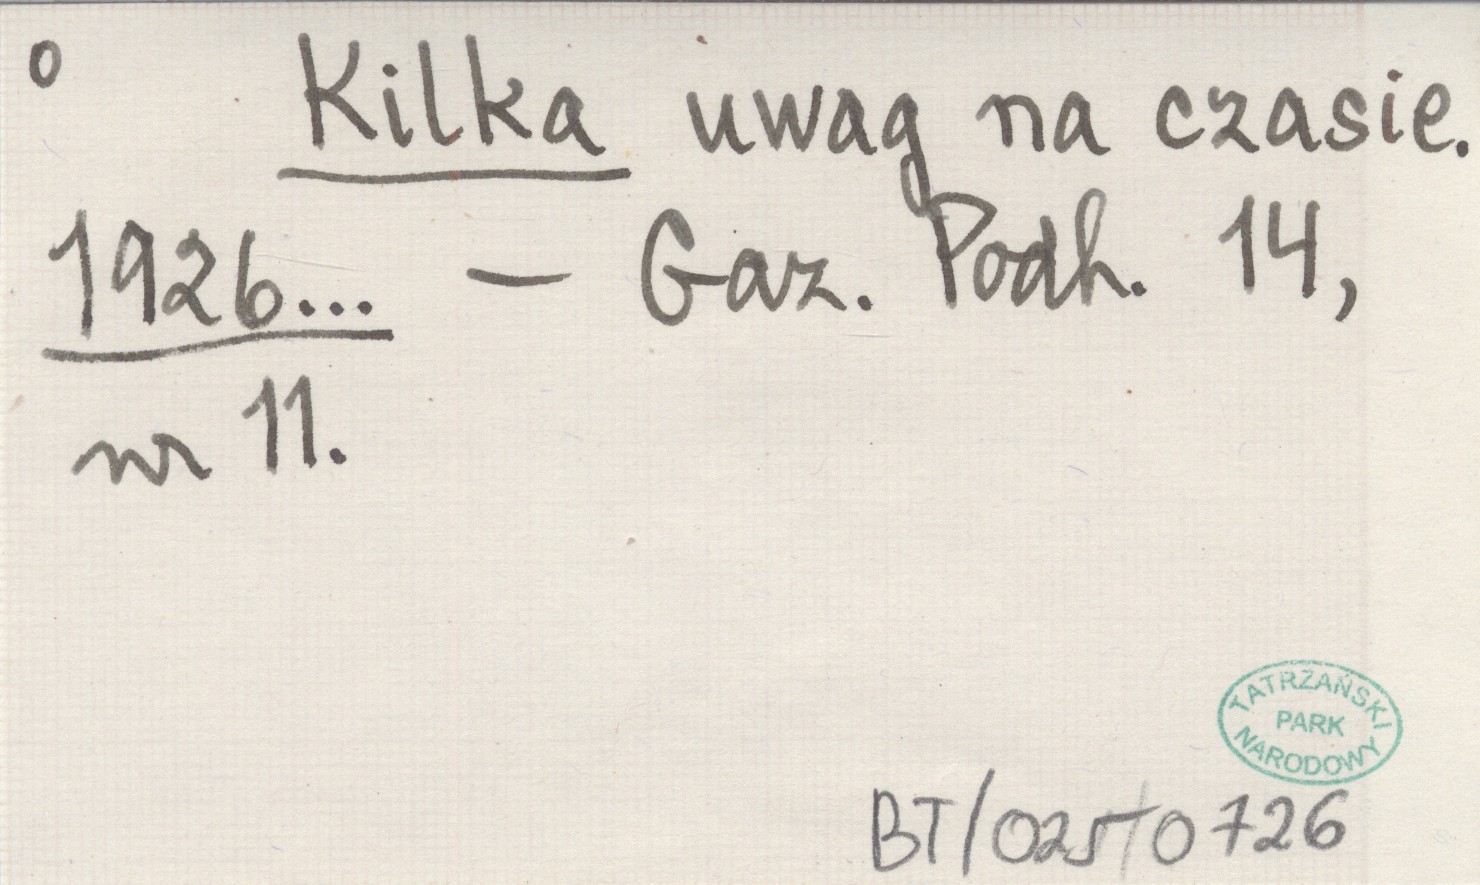 o Kilka uwag na czasie.
1926... — Gaz. Podh. 14,
nr 11.
TATRZAŃSKI
PARK
NARODOWY
BT/025/0726